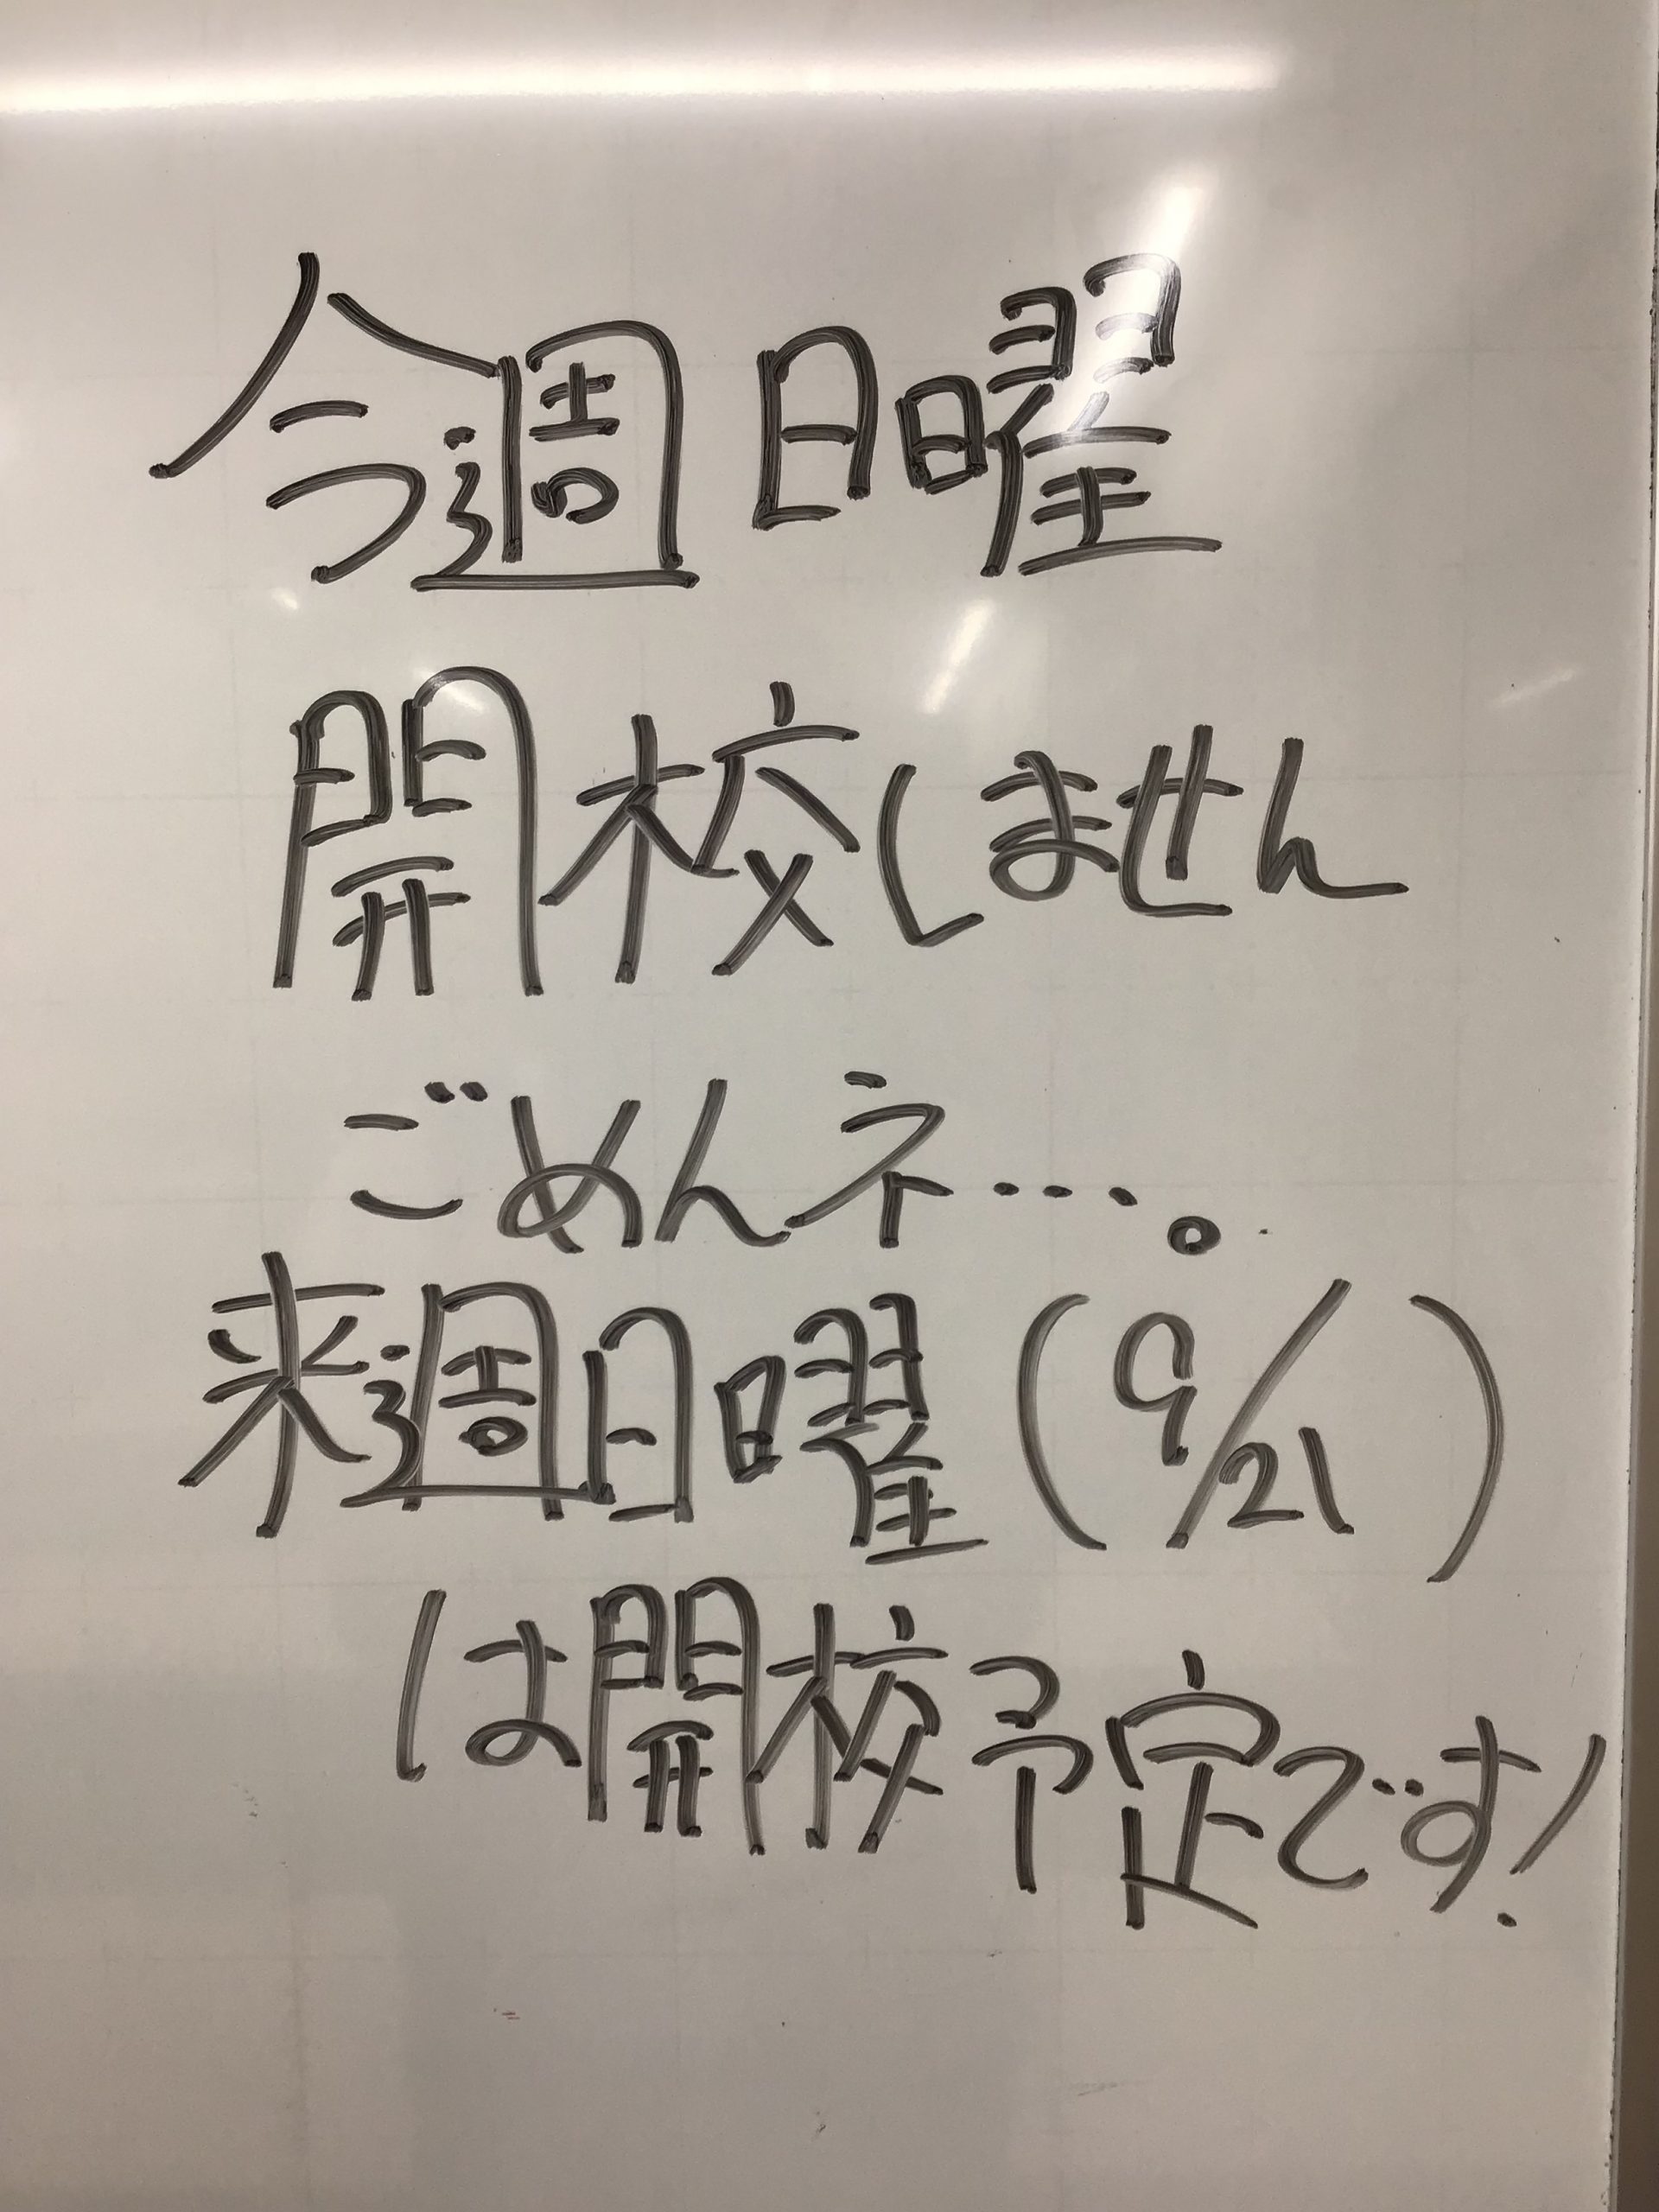 今週日曜
開校しません
ごめんネ…。
来週日曜(9/21)
は開校予定です!